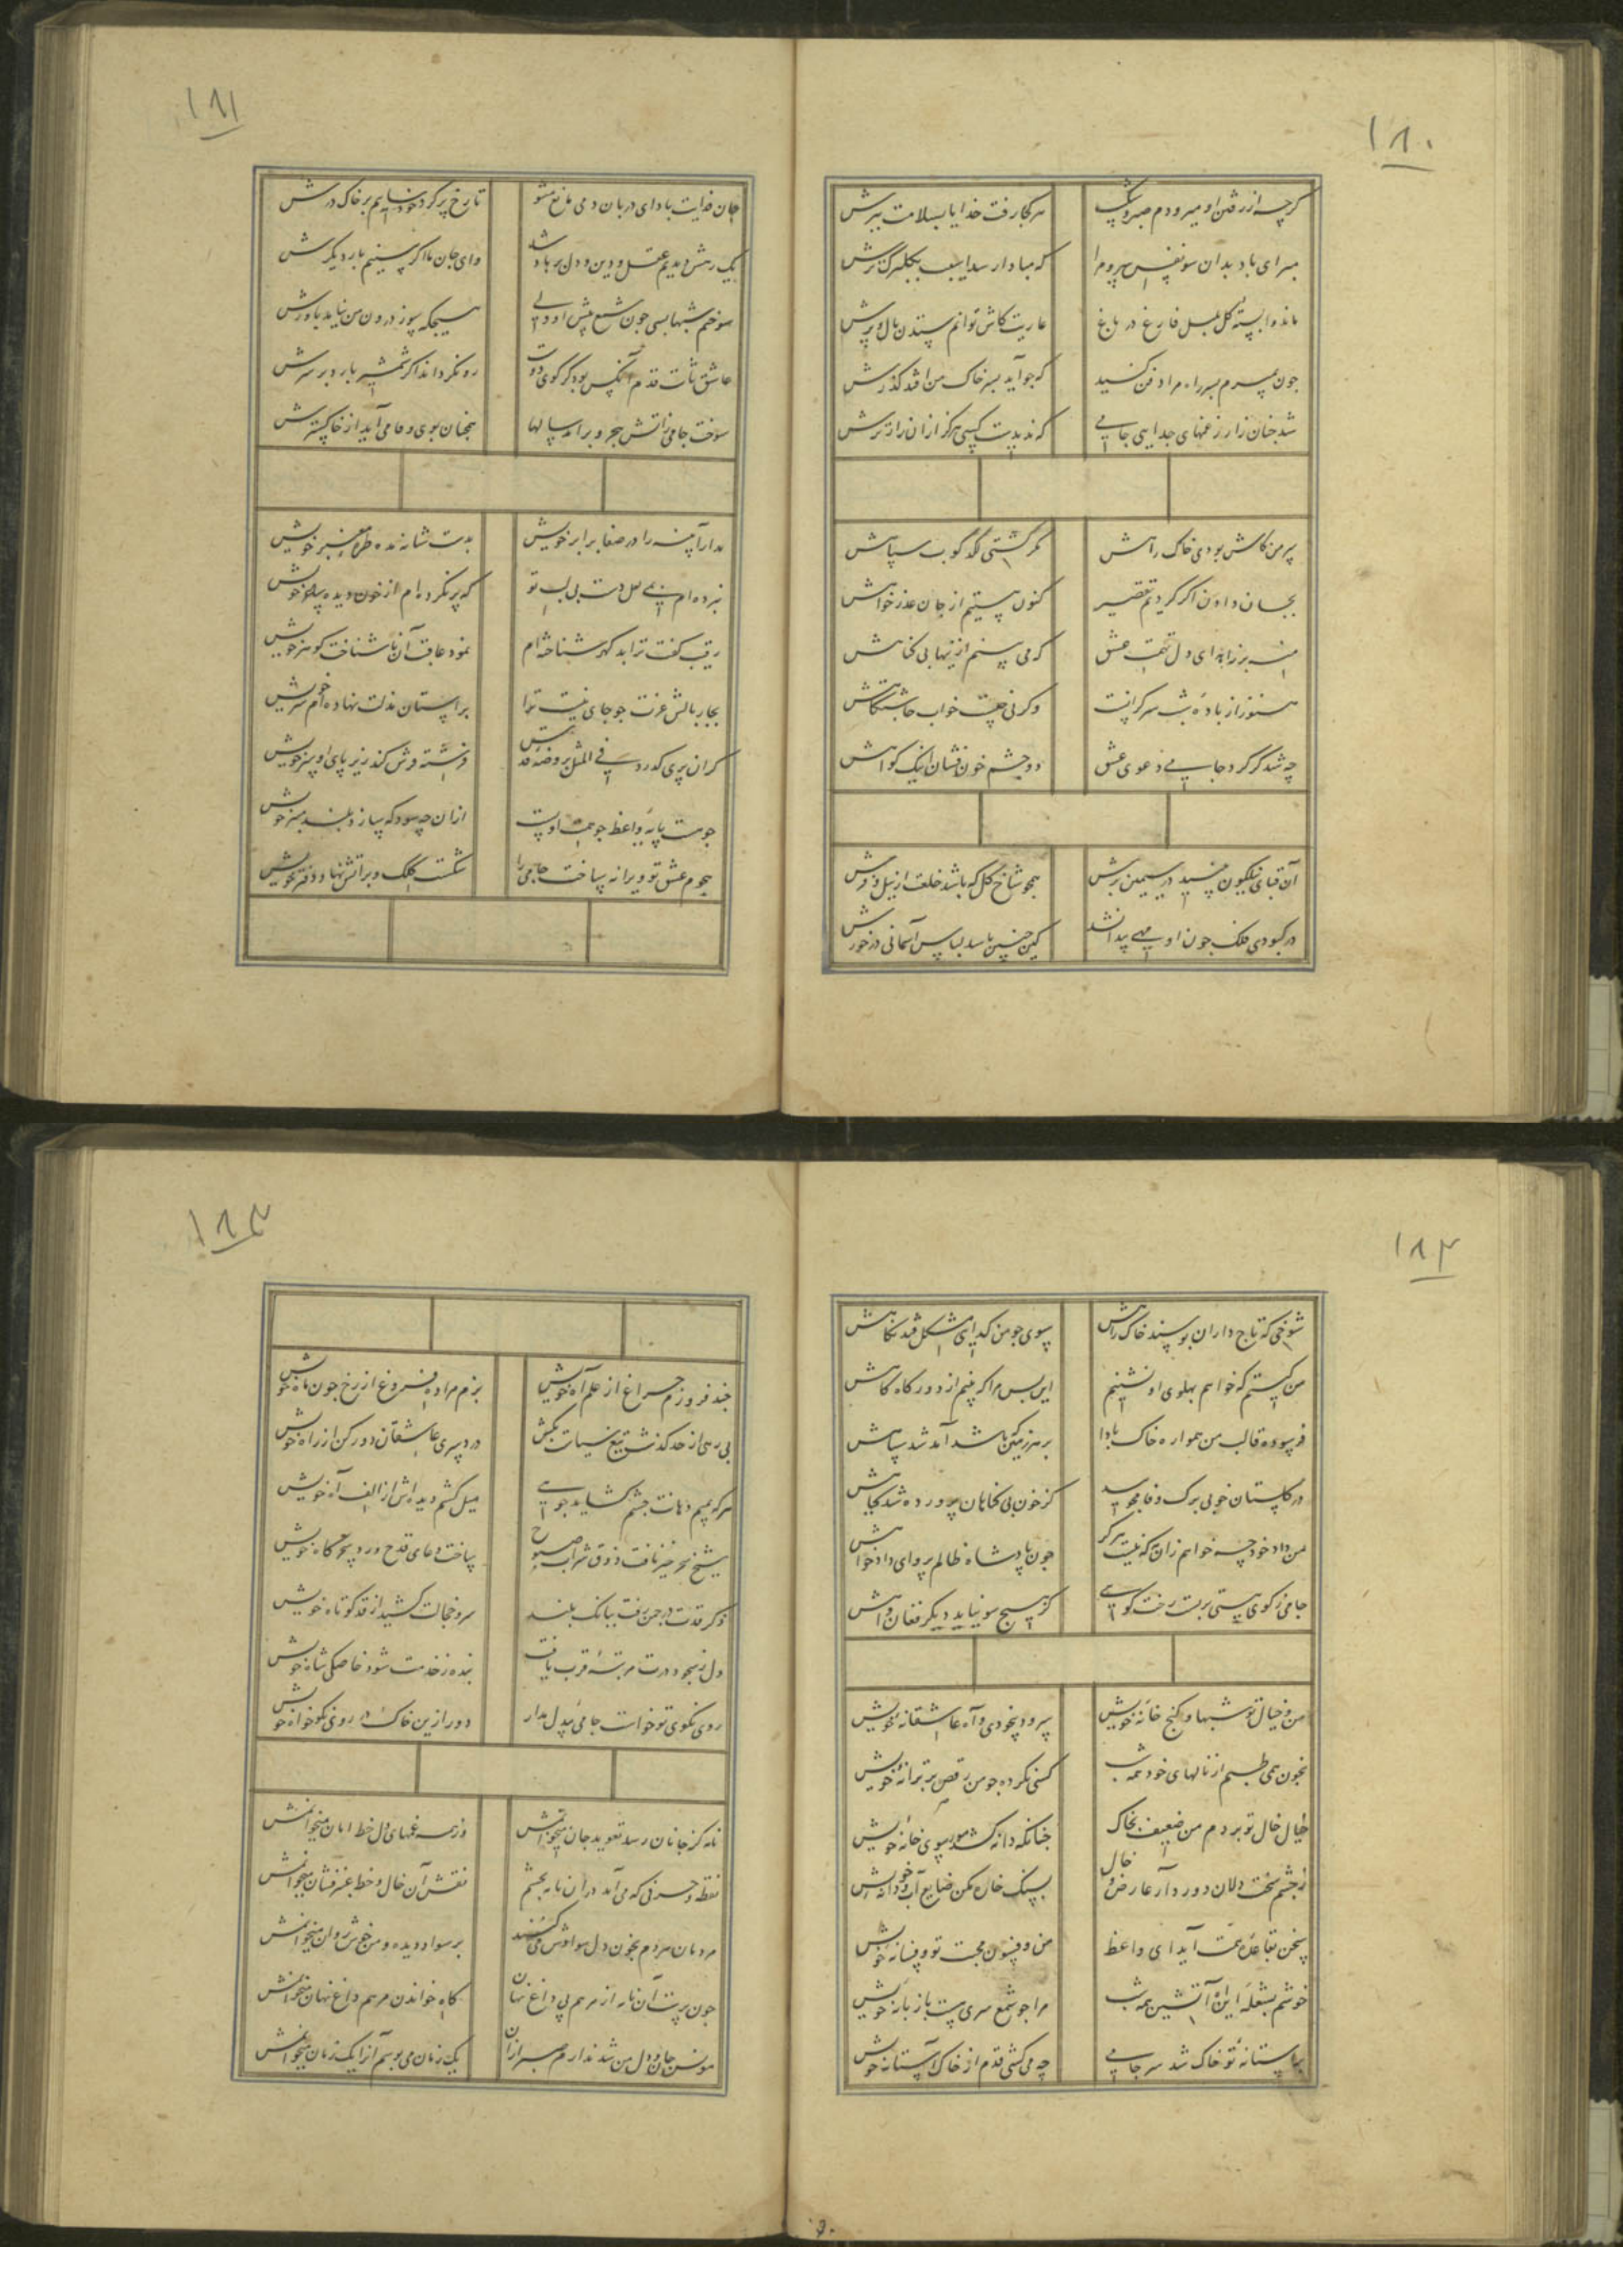 ۱۸۰
کرچه از رفتن او میرودم صبر و شکیب
هر کجا رفت خدایا بسلامت ببرش
مبر ای باد بدان سو نفس سرد مرا
که مبادا رسد آسیب بکلبرک ترش
مانده وابسته کل بلبل فارغ در باغ
عاریت کاش توانم ستدن بال و پرش
چون بمیرم بسر راه مرا دفن کنید
که چو آید بسر خاک من افتد گذرش
شد چنان زار ز غمهای جدایی جامی
که ندیدست کسی هرکز ازان زارترش
بر من کاش بودی خاک راهش
مگر گشتی لگدکوب سپاهش
بجان دادن اگر کردیم تقصیر
کنون هستیم از جان عذرخواهش
منه بر زاهد ای دل تهمت عشق
که می بینم ازینها بی گناهش
هنوز از باده شب سرگرانست
وگرنه چیست خواب چاشتگاهش
چه شد گر کرد جامی دعوی عشق
دو چشم خون فشان اینک گواهش
آن قبای نیلگون چسپیده در سیمین برش
همچو شاخ گل که باشد خلعت از نیلوفرش
در کبودی فلک چون او مهی پیدا نشد
کین چنین باشد لباس آسمانی در خورش
۱۸۱
جان فدایت باد ای دربان دمی مانع مشو
تا رخ پر کرد خود سایم بر خاک درش
یک رهش دیدیم عقل و دین و دل بر باد شد
وای جان ما اگر بینیم بار دیگرش
سوختم شبها بسی چون شمع پیش او ولی
هیچگه سوز درون من نیاید باورش
عاشق ثابت قدم آنکس بود کز کوی دوست
رو نگرداند اگر شمشیر بارد بر سرش
سوخت جامی زآتش هجر و برآمد سالها
همچنان بوی وفا می آید از خاکسترش
مدار آینه را در صفا برابر خویش
بدست شانه مده طره معنبر خویش
نبرده ام پی می دست بی لب تو
که پر نکرده ام از خون دیده ساغر خویش
رقیب گفت ترا بد گهر شناخته ام
نمود عاقبت آن ناشناخت گوهر خویش
بجار بالش عزت چو جای نیست مرا
بر آستان مذلت نهاده ام سر خویش
گر آن پری گذرد فی المثل بروضه قدس
فرشته فرش کند زیر پای او پر خویش
چو پست پایه واعظ چو همت اوست
ازان چه سود که سازد بلند منبر خویش
هجوم عشق تو ویرانه ساخت جامی را
شکست کلک و بر آتش نهاد دفتر خویش
۱۸۲
شوخی که تاج داران بوسند خاک راهش
سوی چو من گدایی مشکل فتد نگاهش
من کیستم که خواهم پهلوی او نشینم
این بس مرا که بینم از دور گاه گاهش
فرسوده قالب من هموار خاک بادا
بر هر زمین که باشد آمد شد سپاهش
در گلستان خوبی برگ وفا مجویید
کز خون بی گناهان پرورده شد گیاهش
من داد خود چه خواهم زان شه که نیست هرگز
چون پادشاه ظالم پروای دادخواهش
جامی ز کوی هستی بربست رخت گویی
کز هیچ سو نیاید دیگر فغان و آهش
من و خیال تو شبها و کنج خانه خویش
سرود بیخودی و آه عاشقانه خویش
بخون همی طپم از نالهای خود همه شب
کسی نکرده چو من رقص بر ترانه خویش
خیال خال تو بردم من ضعیف بخاک
چنانکه دانه کشد مور سوی خانه خویش
ز چشم سخت دلان دور دار عارض و خال
بسنگ خاره مکن ضایع آب و دانه خویش
سخن بقاعده همت آید ای واعظ
من و فسون محبت تو و فسانه خویش
خوشم بشعله این آه آتشین همه شب
مرا چو شمع سری هست با زبانه خویش
بر آستانه تو خاک شد سر جامی
چه می کشی قدم از خاک آستانه خویش
۱۸۳
چند فروزم چراغ از علم آه خویش
بزم مرا ده فروغ از رخ چون ماه خویش
بی رهی از حد گذشت تیغ سیاست بکش
در دسری عاشقان دور کن از راه خویش
هر که ببیم دهانت چشم گشاید چو میم
میل کشم دیده اش از الف آه خویش
شیخ سحرخیز یافت ذوق شراب صبوح
ساخت دعای قدح ورد سحرگاه خویش
ذکر قدت در چمن رفت ببانگ بلند
سرو خجالت کشید از قد کوتاه خویش
دل ز سجود درت مرتبه قرب یافت
بنده ز خدمت شود خاصگی شاه خویش
روی نکوی تو خواست جامی بیدل مدار
دور ازین خاک در روی نکوخواه خویش
نامه کز جانان رسد تعویذ جان میخوانمش
وز همه غمهای دل خط امان میخوانمش
نقطه و حرفی که می آید در آن نامه بچشم
نقش آن خال و خط عنبر فشان میخوانمش
مردمان مردم بخون دل سوادش می کنند
بر سواد دیده و من خوش روان میخوانمش
چون پرست آن نامه از مرهم پی داغ نهان
گاه خواندن مرهم داغ نهان میخوانمش
مونس جان و دل من شد ندارم صبر ازان
یک زمان می بوسم آنرا یک زمان میخوانمش